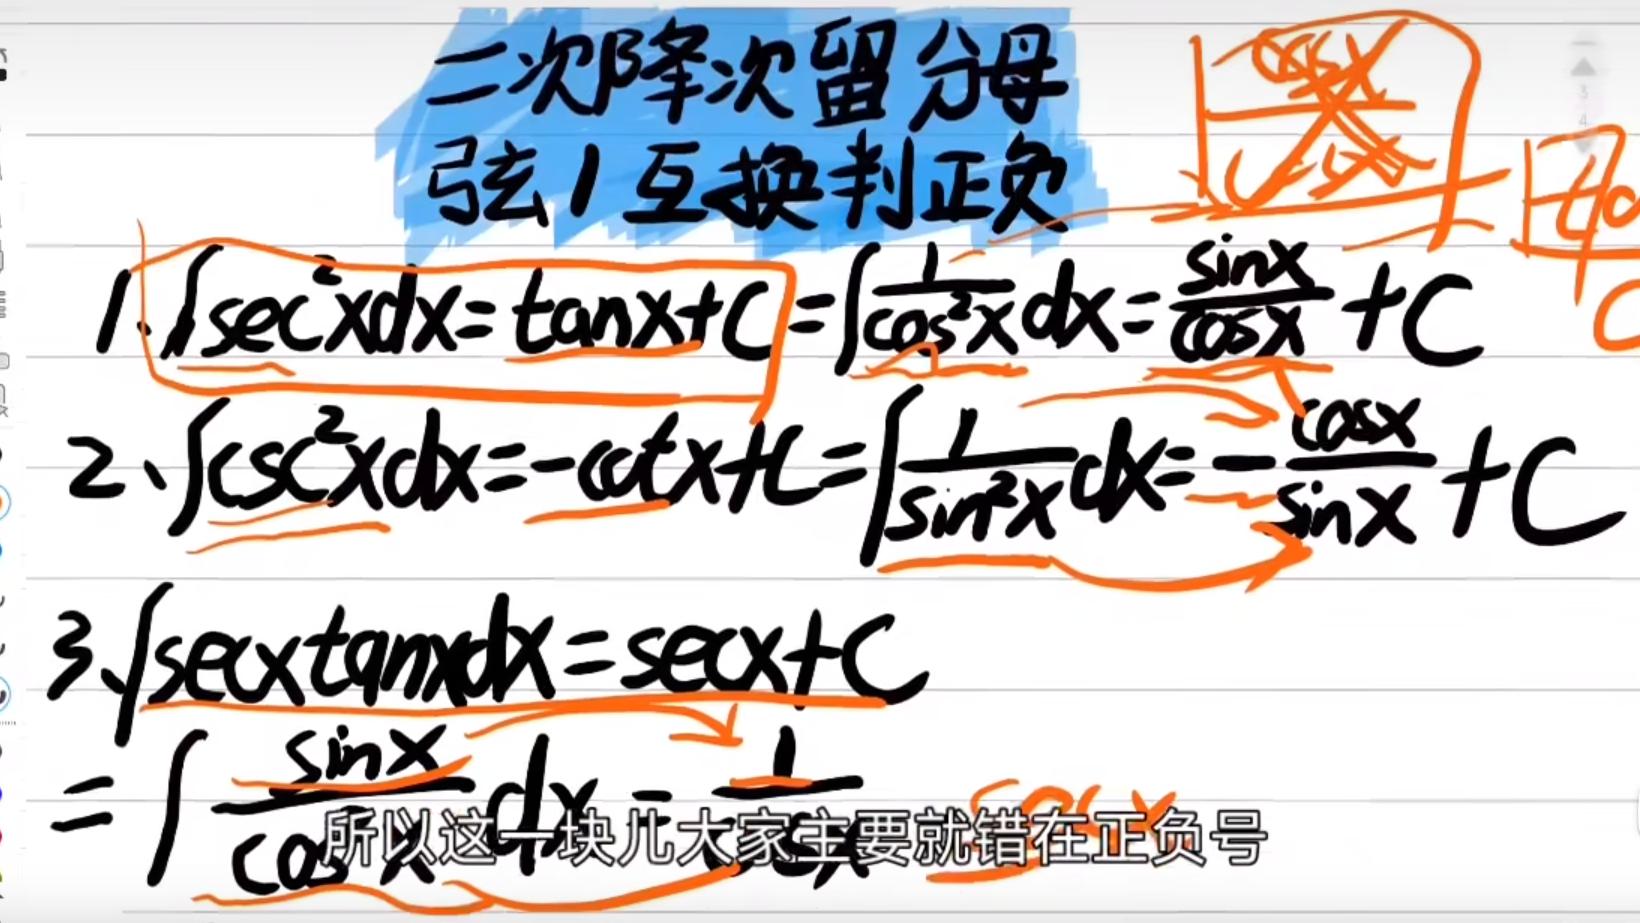 二次降次留分母
弦1互换判正负
cosx
1. ∫sec²xdx=tanx+C=∫1/cos²x dx=sinx/cosx+C
2、∫csc²xdx=-cotx+C=∫1/sin²x dx=-cosx/sinx+C
3、∫secxtanxdx=secx+C
=∫sinx/cos²x dx=1/cosx
secx
所以这一块儿大家主要就错在正负号